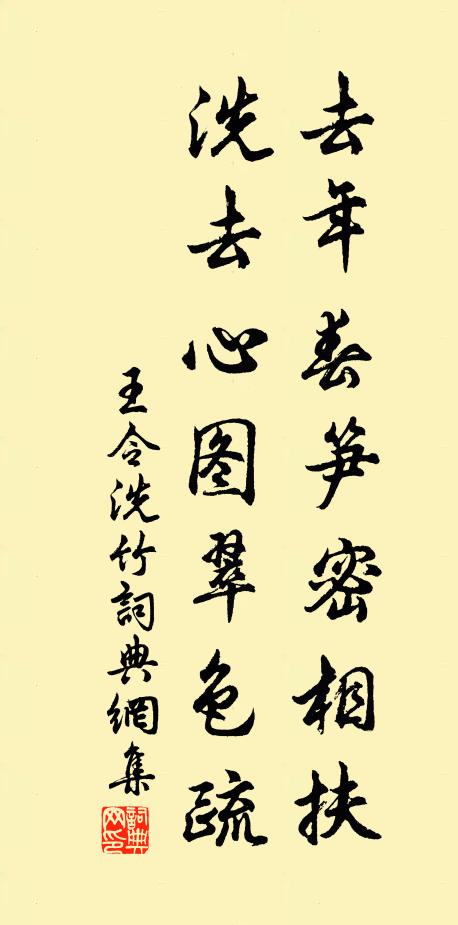 去年春笋密相扶
洗去心图翠色疏
王令洗竹詞典網集
詞典网印